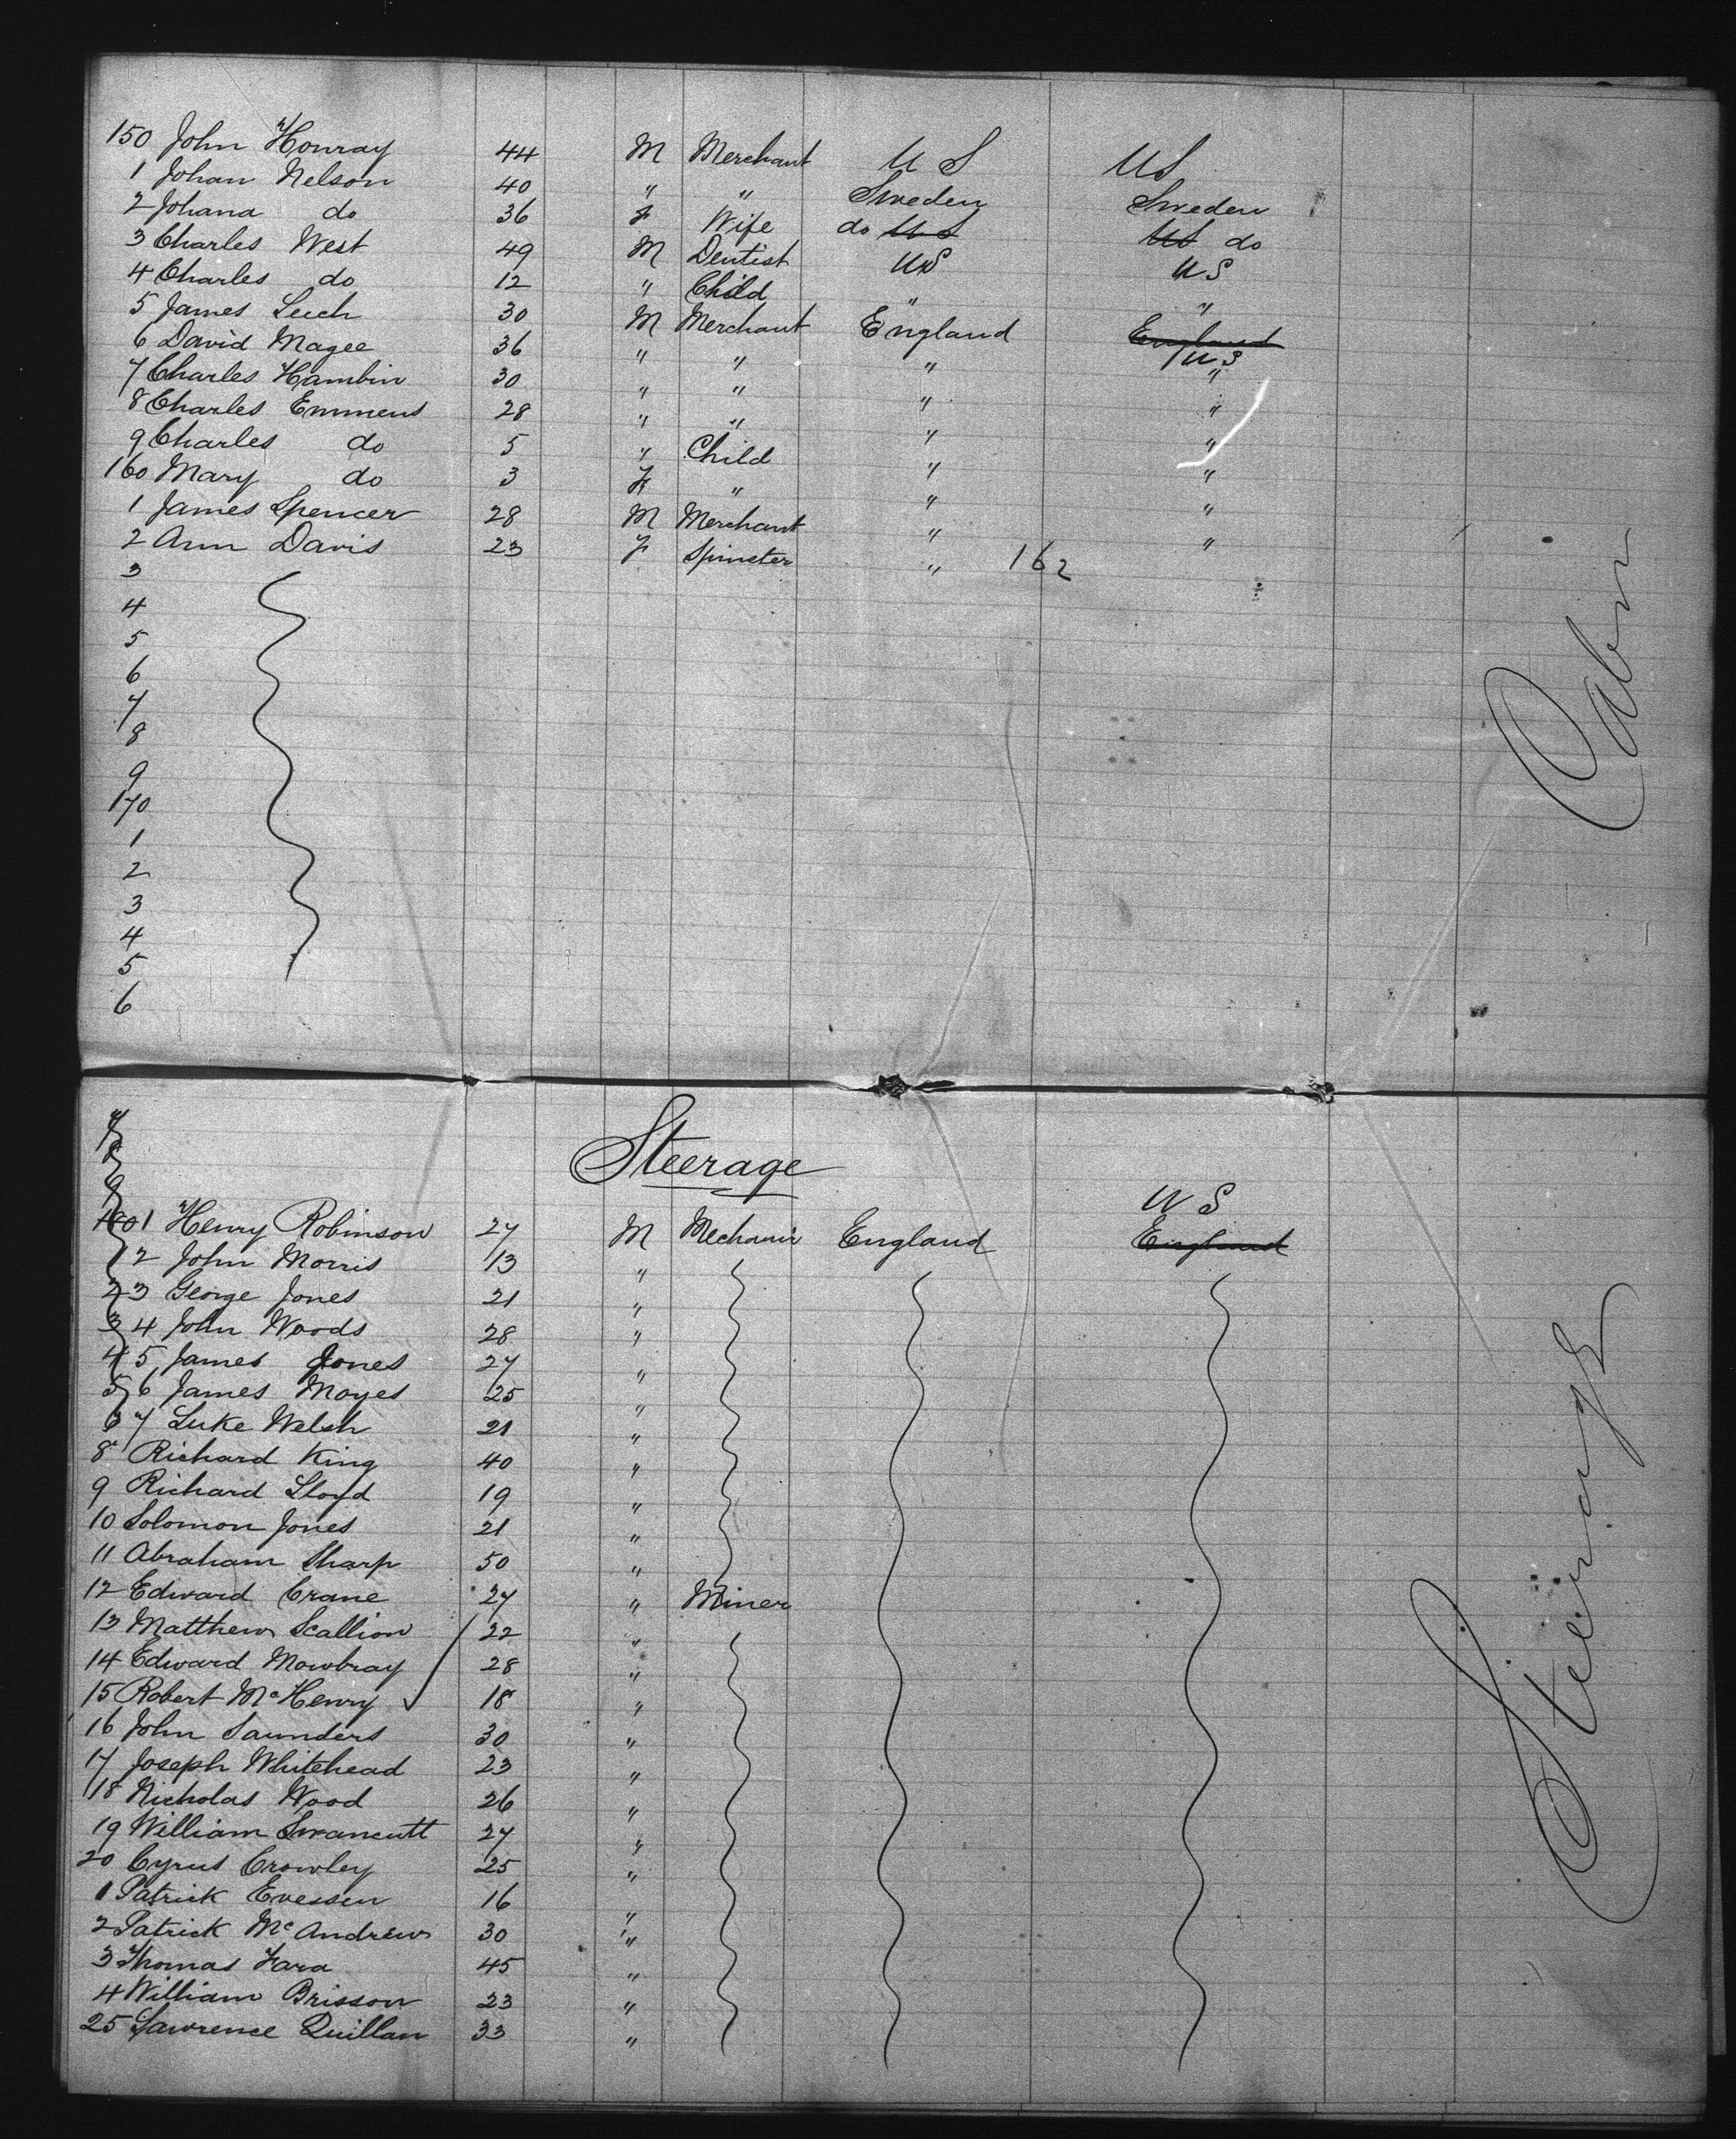 150 John Honray 44 M Merchant U S US
1 Johan Nelson 40 " " Sweden Sweden
2 Johana do 36 F Wife do U S US do
3 Charles West 49 M Dentist US US
4 Charles do 12 " Child " "
5 James Leech 30 M Merchant England England
6 David Magee 36 " " " U S
7 Charles Hambin 30 " " " "
8 Charles Emmens 28 " " " "
9 Charles do 5 " Child " "
160 Mary do 3 F " " "
1 James Spencer 28 M Merchant " "
2 Ann Davis 23 F Spinster " 162 "
3
4
5
6
7
8
9
170
1
2
3
4
5
6
Cabin
7
8
9
Steerage
U S
180 1 Henry Robinson 27 M Mechanic England England
1 2 John Morris 13 "
2 3 George Jones 21 "
3 4 John Woods 28 "
4 5 James Jones 27 "
5 6 James Moyes 25 "
6 7 Luke Welsh 21 "
8 Richard King 40 "
9 Richard Lloyd 19 "
10 Solomon Jones 21 "
11 Abraham Sharp 50 "
12 Edward Crane 27 " Miner
13 Matthew Scallion 22 "
14 Edward Mowbray 28 "
15 Robert McHenry 18 "
16 John Saunders 30 "
17 Joseph Whitehead 23 "
18 Nicholas Wood 26 "
19 William Swancutt 27 "
20 Cyrus Crowley 25 "
1 Patrick 16 "
2 Patrick McAndrew 30 "
3 Thomas Fara 45 "
4 William Brisson 23 "
25 Lawrence Quillan 33 "
Steerage